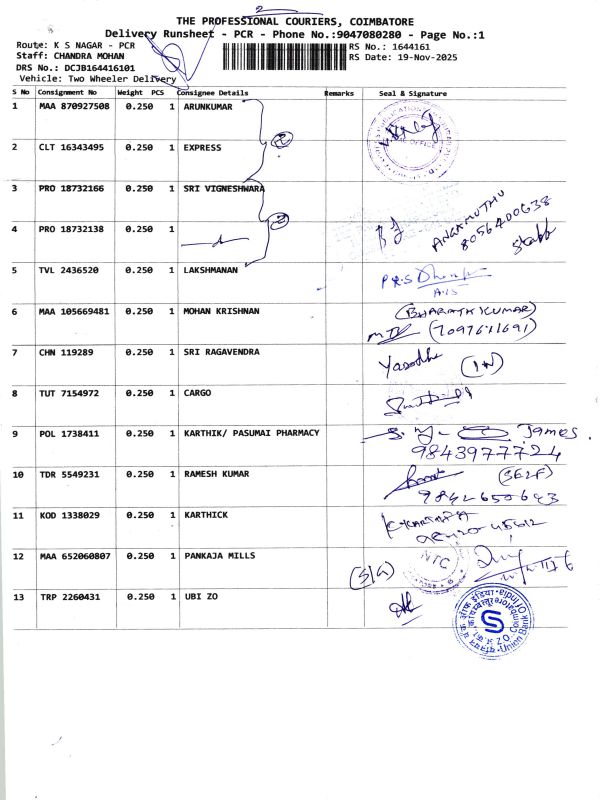 2
THE PROFESSIONAL COURIERS, COIMBATORE
Delivery Runsheet - PCR - Phone No.:9047080280 - Page No.:1
Route: K S NAGAR - PCR
RS No.: 1644161
Staff: CHANDRA MOHAN
RS Date: 19-Nov-2025
DRS No.: DCJB164416101
Vehicle: Two Wheeler Delivery
S No Consignment No Weight PCS Consignee Details Remarks Seal & Signature
1 MAA 870927508 0.250 1 ARUNKUMAR
2 CLT 16343495 0.250 1 EXPRESS
3 PRO 18732166 0.250 1 SRI VIGNESHWARA
4 PRO 18732138 0.250 1
ANGAMUTHU
8056400638
5 TVL 2436520 0.250 1 LAKSHMANAN
P.R.S
6 MAA 105669481 0.250 1 MOHAN KRISHNAN (BHARATH KUMAR)
(7097611691)
7 CHN 119289 0.250 1 SRI RAGAVENDRA Yasodha (IN)
8 TUT 7154972 0.250 1 CARGO
9 POL 1738411 0.250 1 KARTHIK/ PASUMAI PHARMACY James.
9843977724
10 TDR 5549231 0.250 1 RAMESH KUMAR (SELF)
9842650643
11 KOD 1338029 0.250 1 KARTHICK
12 MAA 652060807 0.250 1 PANKAJA MILLS (S/G) NTC
13 TRP 2260431 0.250 1 UBI ZO
Union Bank of India